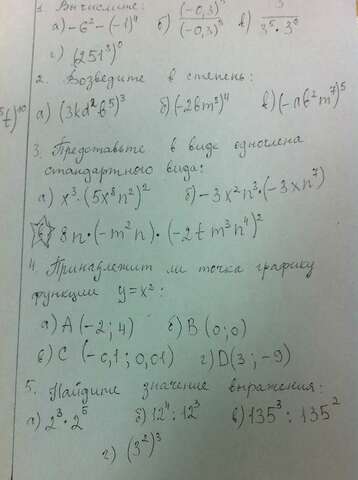 1. Вычислите:
а) -6² - (-1)⁴ б) (-0,3) / (-0,3) в) 3⁵·3⁰
г) (251³)⁰
2. Возведите в степень:
а) (3kd²b⁵)³ б) (-2bm³)⁴ в) (-nb²m⁷)⁵
3. Представьте в виде одночлена
стандартного вида:
а) x³·(5x⁸n²)² б) -3x²n³·(-3xn⁷)
8n·(-m²n)·(-2tm³n⁴)²
4. Принадлежит ли точка графику
функции y=x²:
а) A (-2; 4) б) B (0; 0)
в) C (-0,1; 0,01) г) D(3; -9)
5. Найдите значение выражения:
а) 2³·2⁵ б) 12⁴:12³ в) 135³:135²
г) (3²)³